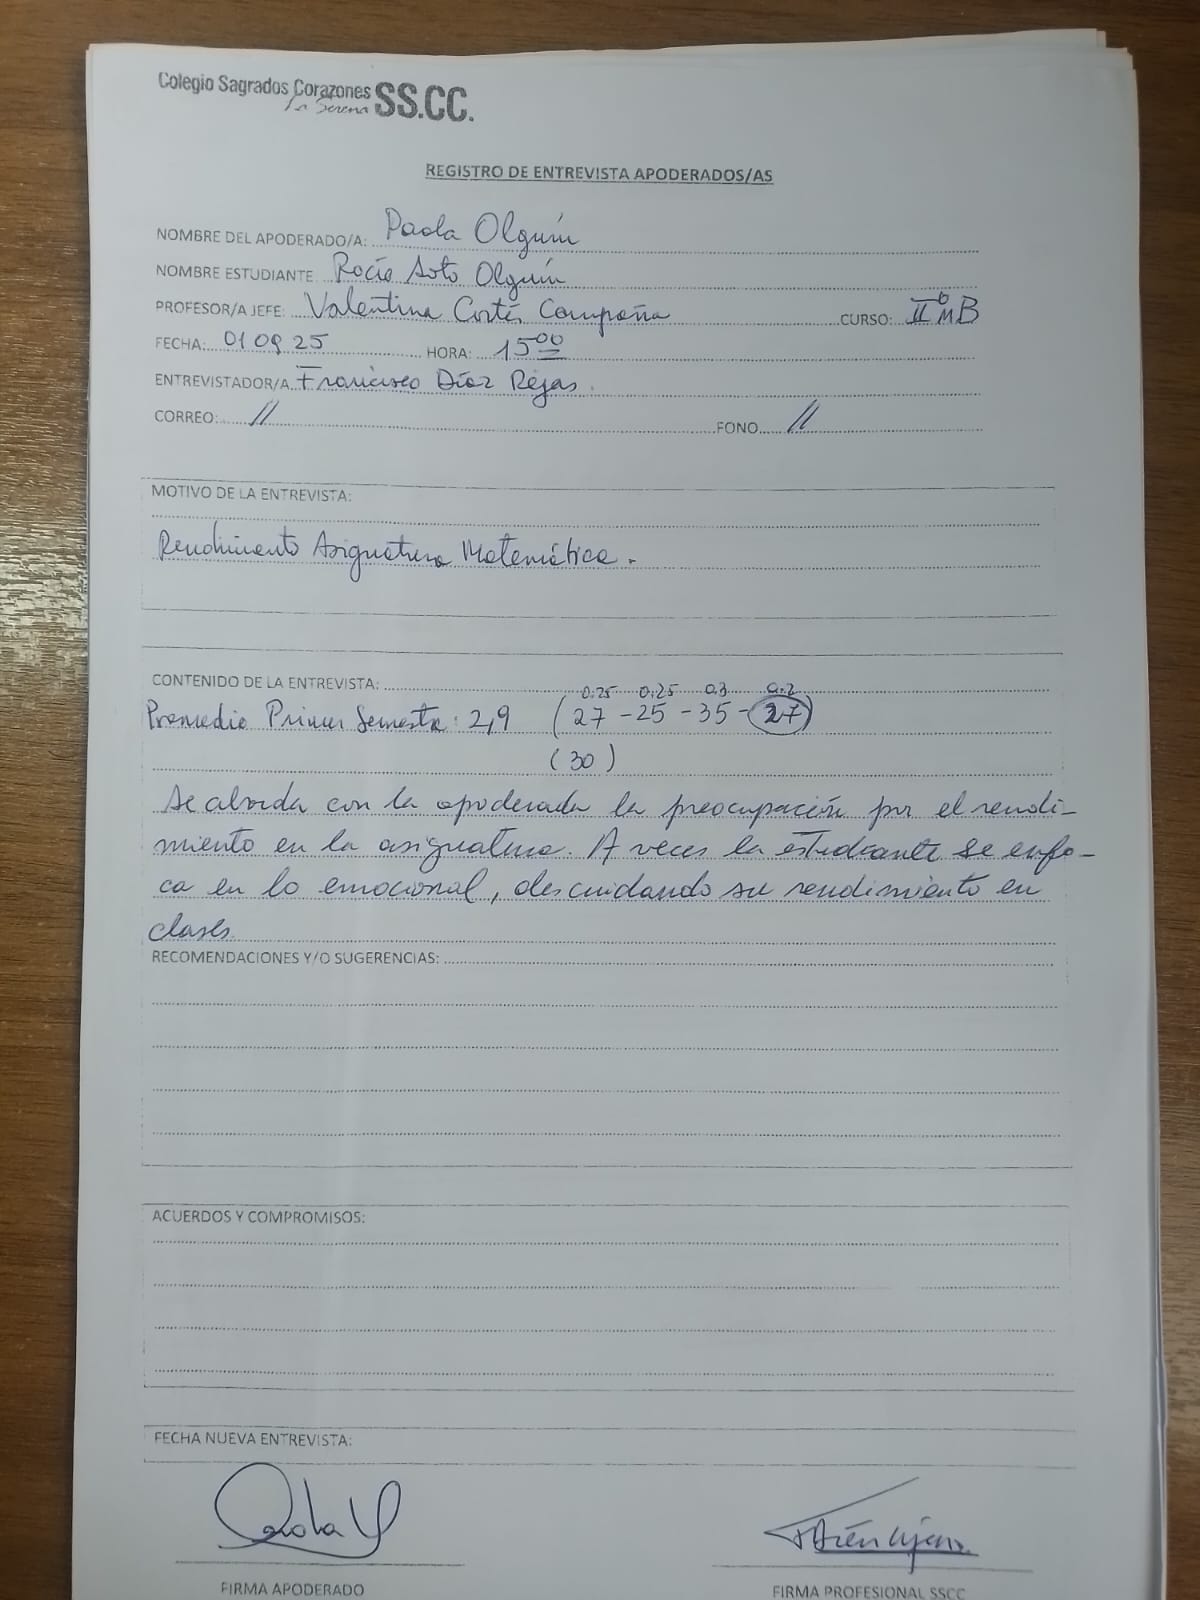 Colegio Sagrados Corazones SS.CC.
La Serena
REGISTRO DE ENTREVISTA APODERADOS/AS
NOMBRE DEL APODERADO/A: Paola Olguín
NOMBRE ESTUDIANTE Rocío Soto Olguín
PROFESOR/A JEFE: Valentina Cortés Campaña CURSO: IIº M B
FECHA: 01 09 25 HORA: 15:00
ENTREVISTADOR/A Francisco Díaz Rojas.
CORREO: // FONO //
MOTIVO DE LA ENTREVISTA:
Rendimiento Asignatura Matemática.
CONTENIDO DE LA ENTREVISTA: 0.25 0.25 0.3 0.2
Promedio Primer Semestre: 2,9 (27 - 25 - 35 - 27)
(30)
Se aborda con la apoderada la preocupación por el rendi-
miento en la asignatura. A veces la estudiante se enfo-
ca en lo emocional, descuidando su rendimiento en
clases.
RECOMENDACIONES Y/O SUGERENCIAS:
ACUERDOS Y COMPROMISOS:
FECHA NUEVA ENTREVISTA:
FIRMA APODERADO FIRMA PROFESIONAL SSCC